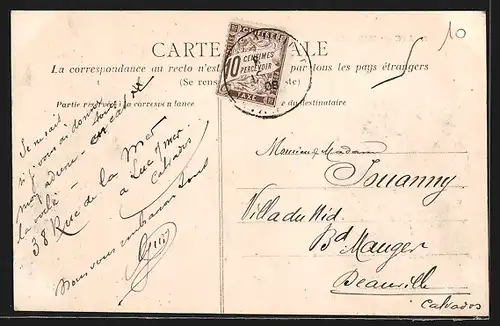 10
CARTE POSTALE
La correspondance au recto n'est par tous les pays étrangers
(Se rens ste)
Partie réservée à la correspondance
e du destinataire
CHIFFRE
10
CENTIMES
À
PERCEVOIR
TAXE
Je ne sais
si je vous ai donné
mon adresse
la voilà
38 Rue de la Mer
à Luc s/ mer
Calvados
Nous vous embrassons tous
Monsieur Madame
Jouanny
Villa du Nid
Bd Mauger
Beauville
Calvados